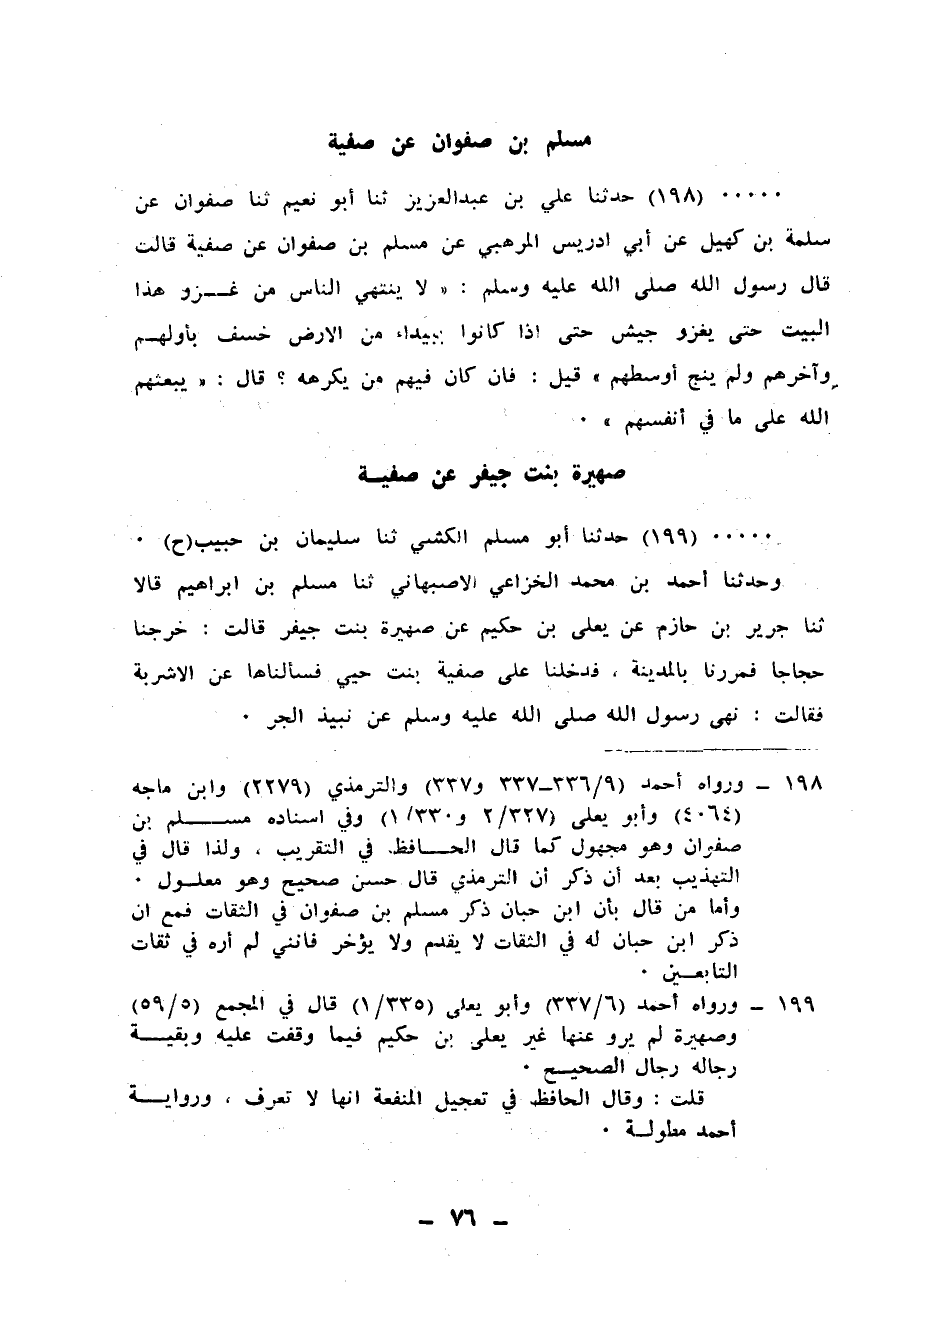 مسلم بن صفوان عن صفية
٠٠٠٠٠ (١٩٨) حدثنا علي بن عبدالعزيز ثنا أبو نعيم ثنا صفوان عن
سلمة بن كهيل عن أبي ادريس المرهبي عن مسلم بن صفوان عن صفية قالت
قال رسول الله صلى الله عليه وسلم : « لا ينتهي الناس من غــزو هذا
البيت حتى يغزو جيش حتى اذا كانوا ببيداء من الارض خسف بأولهـم
وآخرهم ولم ينج أوسطهم » قيل : فان كان فيهم من يكرهه ؟ قال : « يبعثهم
الله على ما في أنفسهم » ٠
صهيرة بنت جيفر عن صفيــة
٠٠٠٠٠ (١٩٩) حدثنا أبو مسلم الكشي ثنا سليمان بن حبيب(ح) ٠
وحدثنا أحمد بن محمد الخزاعي الاصبهاني ثنا مسلم بن ابراهيم قالا
ثنا جرير بن حازم عن يعلى بن حكيم عن صهيرة بنت جيفر قالت : خرجنا
حجاجا فمررنا بالمدينة ، فدخلنا على صفية بنت حيي فسألناها عن الاشربة
فقالت : نهى رسول الله صلى الله عليه وسلم عن نبيذ الجر ٠
١٩٨ ــ ورواه أحمد (٣٣٦/٩ــ٣٣٧ و٣٣٧) والترمذي (٢٢٧٩) وابن ماجه
(٤٠٦٤) وأبو يعلى (٢/٣٢٧ و١/٣٣٠) وفي اسناده مســـلم بن
صفران وهو مجهول كما قال الحـــافظ في التقريب ، ولذا قال في
التهذيب بعد أن ذكر أن الترمذي قال حسن صحيح وهو معلـول ٠
وأما من قال بأن ابن حبان ذكر مسلم بن صفوان في الثقات فمع ان
ذكر ابن حبان له في الثقات لا يقدم ولا يؤخر فانني لم أره في ثقات
التابعــين ٠
١٩٩ ــ ورواه أحمد (٣٣٧/٦) وأبو يعلى (١/٣٣٥) قال في المجمع (٥٩/٥)
وصهيرة لم يرو عنها غير يعلى بن حكيم فيما وقفت عليه وبقيـــة
رجاله رجال الصحيــح ٠
قلت : وقال الحافظ في تعجيل المنفعة انها لا تعرف ، وروايـــة
أحمد مطولــة ٠
ــ ٧٦ ــ